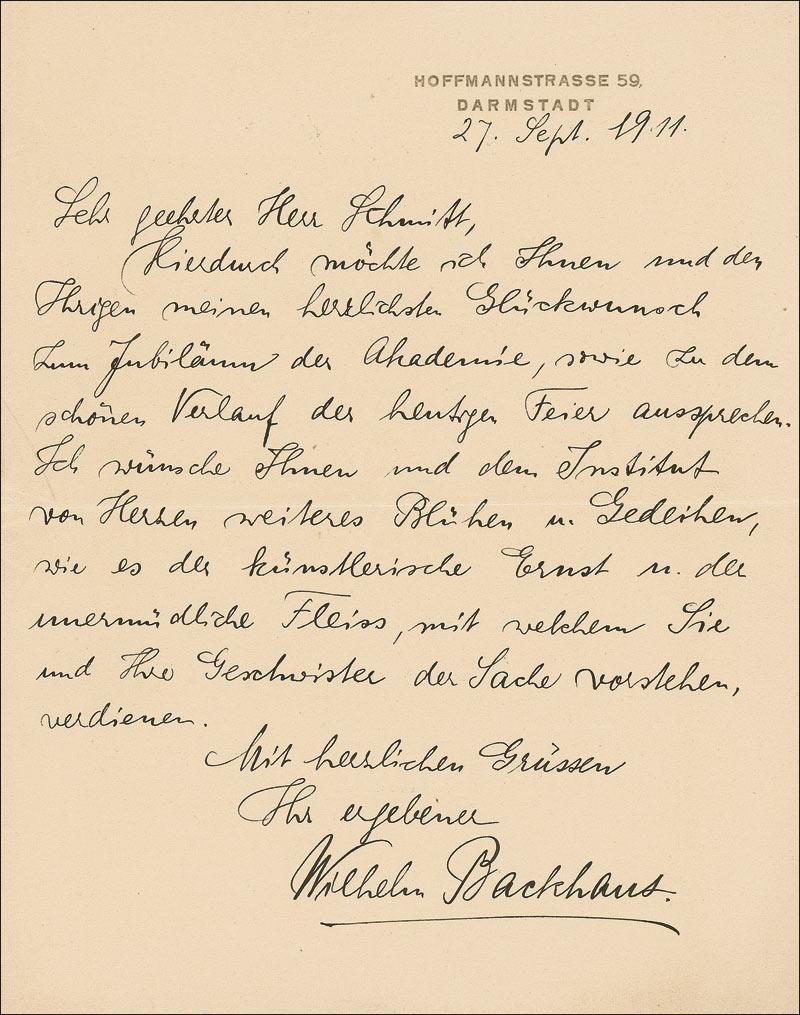 HOFFMANNSTRASSE 59,
DARMSTADT
27. Sept. 1911.
Sehr geehrter Herr Schmitt,
Hierdurch möchte ich Ihnen und den
Ihrigen meinen herzlichsten Glückwunsch
zum Jubiläum der Akademie, sowie zu dem
schönen Verlauf der heutigen Feier aussprechen.
Ich wünsche Ihnen und dem Institut
von Herzen weiteres Blühen u. Gedeihen,
wie es der künstlerische Ernst u. der
unermüdliche Fleiss, mit welchem Sie
und Ihre Geschwister der Sache vorstehen,
verdienen.
Mit herzlichen Grüssen
Ihr ergebener
Wilhelm Backhaus.